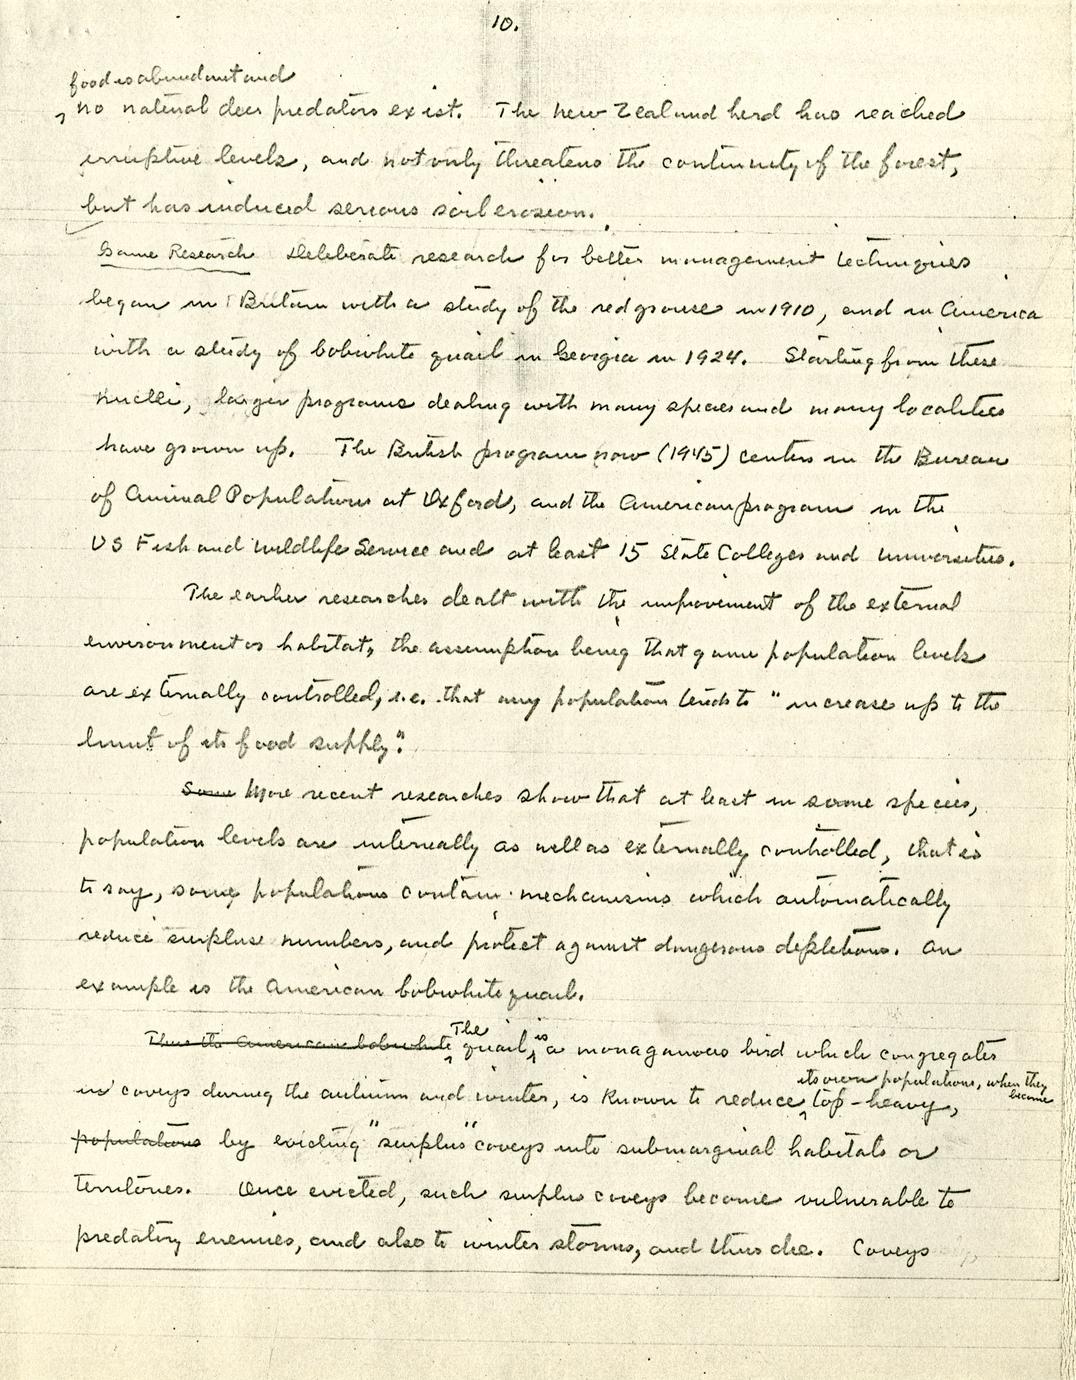 10.
food is abundant and
no natural deer predators exist. The New Zealand herd has reached
irruptive levels, and not only threatens the continuity of the forest,
but has induced serious soil erosion.
Game Research Deliberate research for better management techniques
began in Britain with a study of the red grouse in 1910, and in America
with a study of bobwhite quail in Georgia in 1924. Starting from these
nuclei, larger programs dealing with many species and many localities
have grown up. The British program now (1945) centers in the Bureau
of Animal Populations at Oxford, and the American program in the
US Fish and Wildlife Service and at least 15 State Colleges and universities.
The earlier researches dealt with the improvement of the external
environment or habitat, the assumption being that game population levels
are externally controlled, i.e. that any population tends to "increase up to the
limit of its food supply".
Some More recent researches show that at least in some species,
population levels are internally as well as externally controlled, that is
to say, some populations contain mechanisms which automatically
reduce surplus numbers, and protect against dangerous depletions. An
example is the American bobwhite quail.
Thus the American bobwhite The quail, is a monogamous bird which congregates
its own populations, when they become
in coveys during the autumn and winter, is known to reduce top-heavy,
populations by evicting "surplus" coveys into submarginal habitats or
territories. Once evicted, such surplus coveys become vulnerable to
predatory enemies, and also to winter storms, and thus die. Coveys